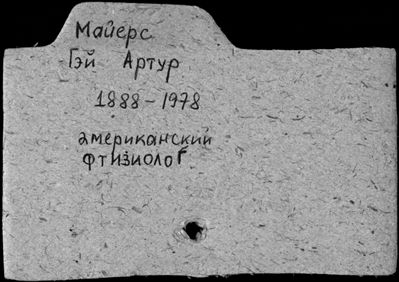 Майерс
Гэй Артур
1888-1978
американский
фтизиолог